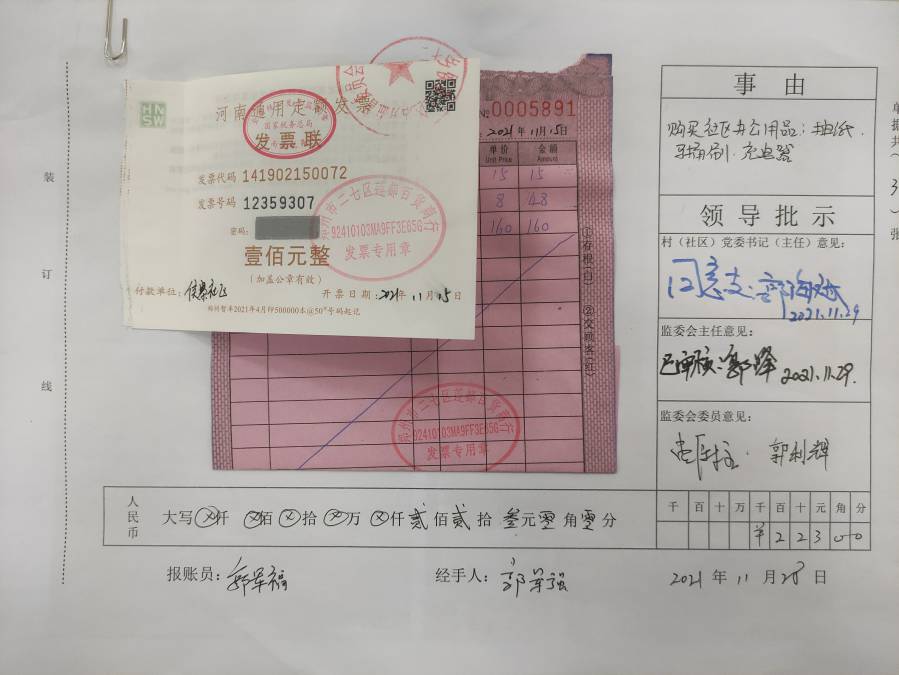 河南通用定额发票
国家税务总局
发票联
发票代码 141902150072
发票号码 12359307
密码:
壹佰元整
(加盖公章有效)
付款单位: 侯寨社区
开票日期: 2021年11月15日
郑州市二七区莲娜百货商行
92410103MA9FF3E65G
发票专用章
№ 0005891
2021年11月15日
单价 金额
Unit Price Amount
15 15
8 48
160 160
①存根(白) ②交顾客(红)
郑州市二七区莲娜百货商行
92410103MA9FF3E65G
发票专用章
装
订
线
事由
购买社区办公用品: 抽纸
马桶刷. 充电器
领导批示
村(社区)党委书记(主任)意见:
同意支:
2021.11.29
监委会主任意见:
已审核: 2021.11.29.
监委会委员意见:
郭利辉
人民币
大写 ⊗仟 ⊗佰 ⊗拾 ⊗万 ⊗仟 贰佰 贰拾 叁元 零角 零分
千 百 十 万 千 百 十 元 角 分
¥ 2 2 3 0 0
报账员: 郭军福
经手人: 郭军强
2021年11月28日
单
据
共
(
3
)
张